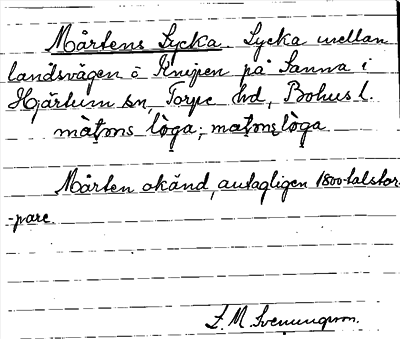 Mårtens Lycka. Lycka mellan
landsvägen o Knipen på Sanna i
Hjärtum sn, Torpe hd, Bohus l.
måṭɷns lòga; maṭɷnʂ lòga
Mårten okänd, antagligen 1800-talstor-
-pare.
L. M. Svenungsson.